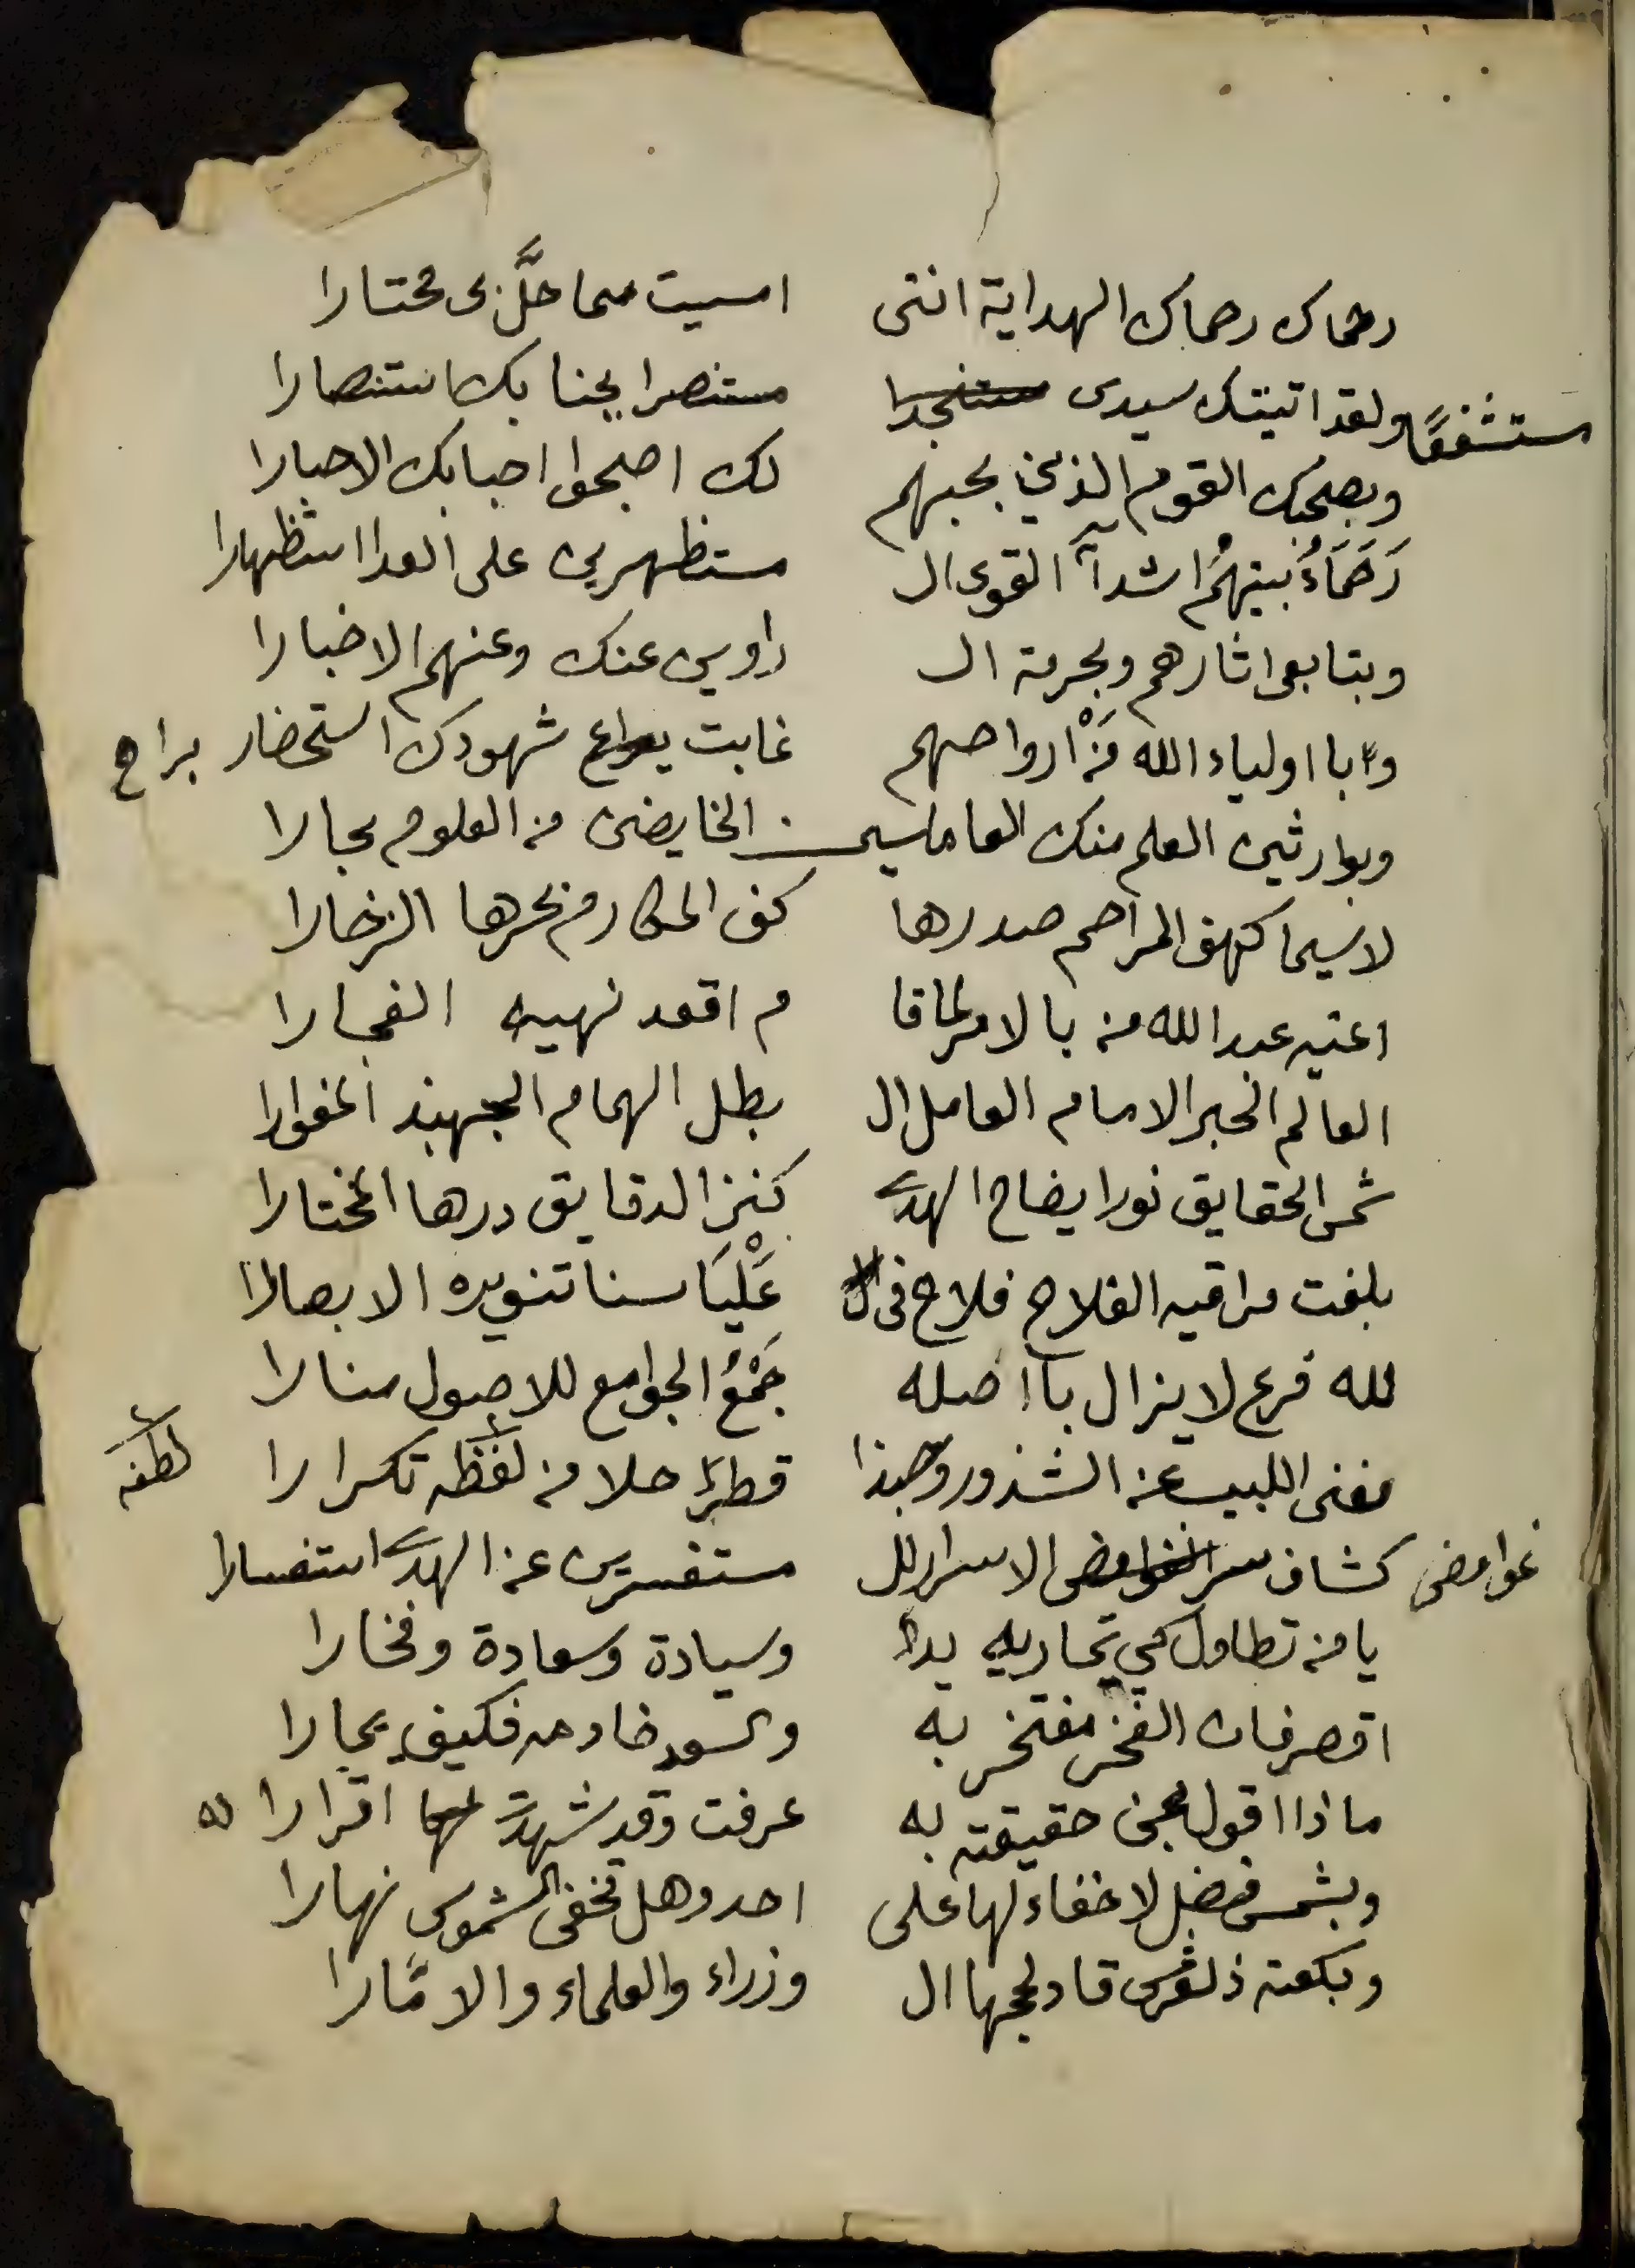 رحماك رحماك الهداية انني امسيت مما حلَّ بي محتارا
مستشفعًا ولقد اتيتك سيدى مستنجدا مستنصرا بجنابك استنصارا
وبصحبك القوم الذين بحبهم لك اصبحوا احبابك الاحبارا
رَحَمَاءُ بينهمُ اشدآء القوى ال مستظهرين على العدا استظهارا
وبتابعى اثارهم وبحرمة ال راوين عنك وعنهم الاخبارا
وباولياء الله مَنْ ارواحهم غابت شهودك استحضار براح
وبوارثين العلم منك العاملين الخايضين من العلوم بحارا
لاسيما كهف المراحم صدرها كف المكارم بحرها الزخارا
اعنيه عبد الله من بالامر لما قا م اقعد نهيه الفجارا
العالم الحبر الامام العامل ال بطل الهمام الجهبذ المغوارا
شمس الحقايق نور ايضاح الهدى كنز الدقايق درها المختارا
بلغت مراقيه الفلاح فلاح فى ال عَلْيَا سنا تنويره الابصارا
لله فرع لا يزال بااصله جَمْعُ الجوامع للاصول منارا
مغنى اللبيب عن الشذور وحبذا قطر حلا من لفظه تكرارا لطفه
غوامض كشاف سر الغوامض الاسرار لل مستفسرين عن الهدى استفسارا
يا من تطاول كي تجاريه يدا وسيادة وسعادة وفخارا
اقصر فان الفخر مفتخر به والسعد خادمه فكيف يجارا
ماذا اقول بمن حقيقته به عرفت وقد شهدت لها اقرارا له
وبشمس فضل لا خفاء لها على احد وهل تخفى الشموس نهارا
وبكعبة قاد لحجها ال وزراء والعلماء والامّارا